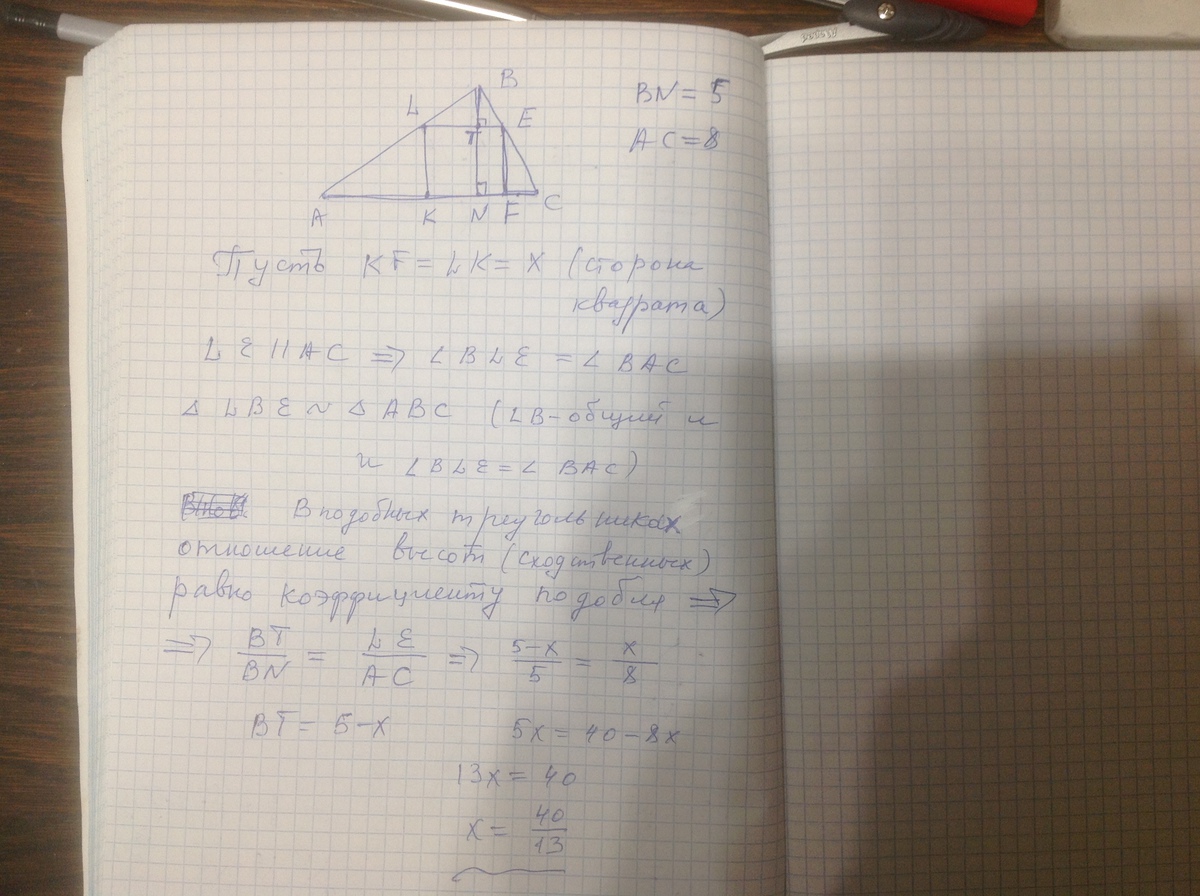 B
L
E
T
A
K
N
F
C
BN = 5
AC = 8
Пусть KF = LK = X (сторона
квадрата)
LE || AC => ∠BLE = ∠BAC
△LBE ~ △ABC (∠B - общий и
и ∠BLE = ∠BAC)
В подобных треугольниках
отношение высот (сходственных)
равно коэффициенту подобия =>
=> BT/BN = LE/AC => 5-x/5 = x/8
BT = 5-x 5x = 40-8x
13x = 40
x = 40/13